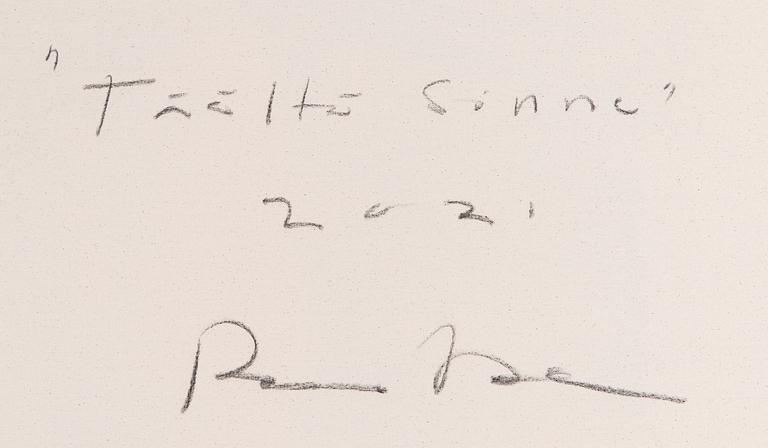 "Täältä Sinne"
2021